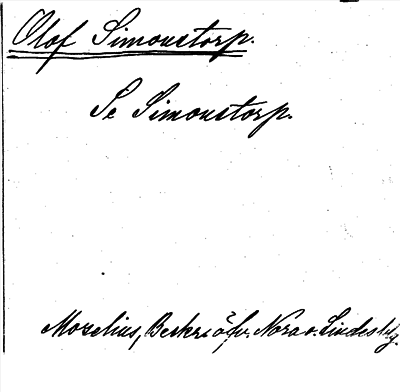 Olof Simonstorp.
Se Simonstorp.
Morelius, Beskr. öfv. Nora o. Lindesb:g.